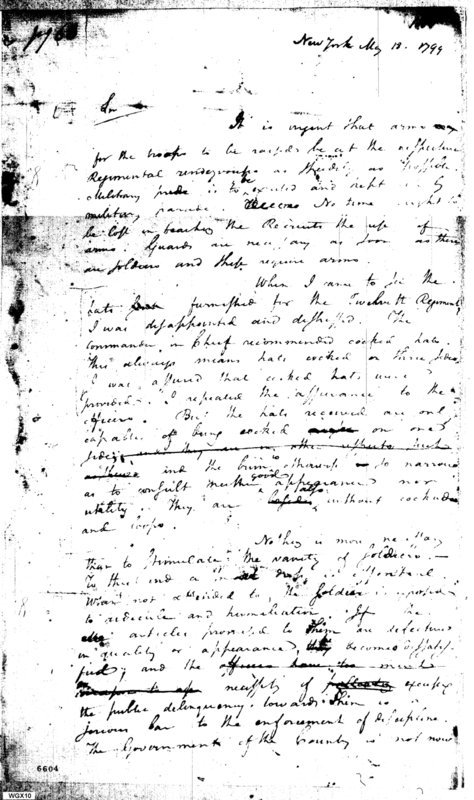 New York May 18. 1799
Sir
It is urgent that arms
for the troops to be raised be at the respective
Regimental rendezvouses as speedily as possible
Military pride is to be excited and kept up by
military parade. No time ought to
be lost in teaching the Recruits the use of
arms. Guards are necessary as soon as there
are soldiers and these require arms.
When I came to see the
hats furnished for the Twelveth Regiment,
I was disappointed and distressed. The
Commander in Chief recommended cocked hats.
This always means hats cocked on three sides
I was assured that cocked hats were
provided. I repeated the assurance to the
officers. But the hats received are only
capable of being cocked on one
side; and they are in other respects such
and the brim is otherwise so narrow
as to consult neither good appearance nor
utility. They are also without cockades
and loops.
Nothing is more necessary
than to stimulate the vanity of soldiers.
To this end a smart dress is essential
When not attended to, the soldier is exposed
to ridicule and humiliation. If the
articles promised to him are defective
in quality or appearance, he becomes dissatis
fied; and the
necessity of excusing
the public delinquency towards them is a
serious bar to the enforcement of discipline.
The Government of the Country is not now
6604
WGX10